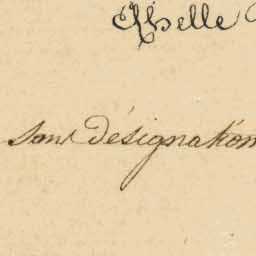 Echelle
sans désignation